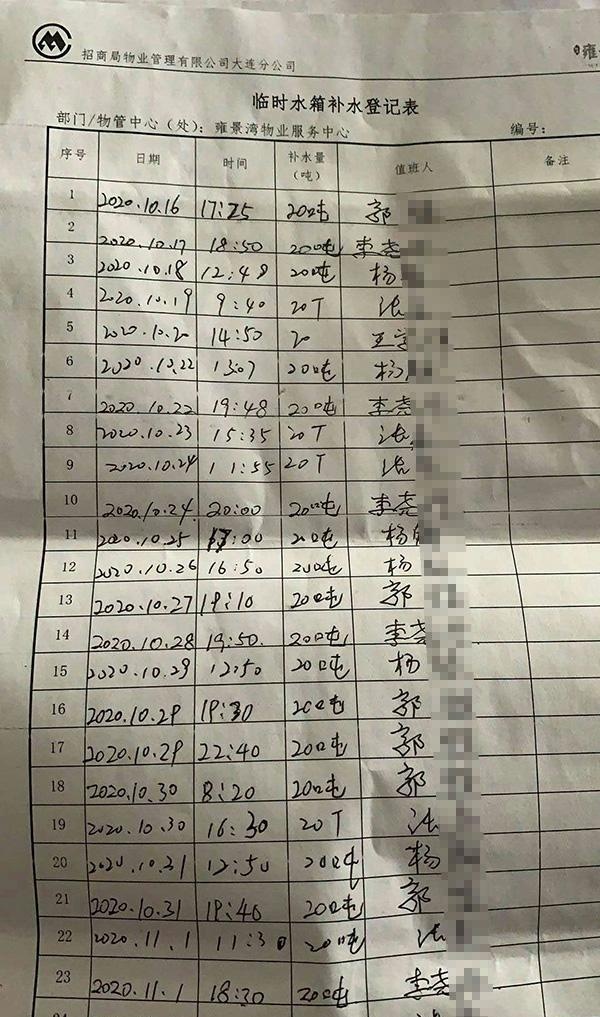 招商局物业管理有限公司大连分公司
雍
临时水箱补水登记表
部门/物管中心（处）：雍景湾物业服务中心 编号：
序号 日期 时间 补水量（吨） 值班人 备注
1 2020.10.16 17:25 20吨 郭
2 2020.10.17 18:50 20吨 李尧
3 2020.10.18 12:48 20吨 杨
4 2020.10.19 9:40 20T 张
5 2020.10.20 14:50 20 王
6 2020.10.22 13:07 20吨 杨
7 2020.10.22 19:48 20吨 李尧
8 2020.10.23 15:35 20T 张
9 2020.10.24 11:55 20T 张
10 2020.10.24 20:00 20吨 李尧
11 2020.10.25 :00 20吨 杨
12 2020.10.26 16:50 20吨 杨
13 2020.10.27 19:10 20吨 郭
14 2020.10.28 19:50 20吨 李尧
15 2020.10.29 12:50 20吨 杨
16 2020.10.29 19:30 20吨 郭
17 2020.10.29 22:40 20吨 郭
18 2020.10.30 8:20 20吨 郭
19 2020.10.30 16:30 20T 张
20 2020.10.31 12:50 20吨 杨
21 2020.10.31 19:40 20吨 郭
22 2020.11.1 11:30 20吨 张
23 2020.11.1 18:30 20吨 李尧